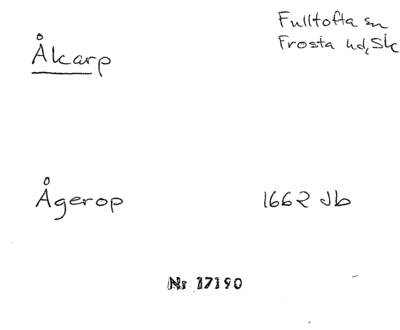 Åkarp
Fulltofta sn
Frosta hd, Sk
Ågerop 1662 Jb
Nr 17190